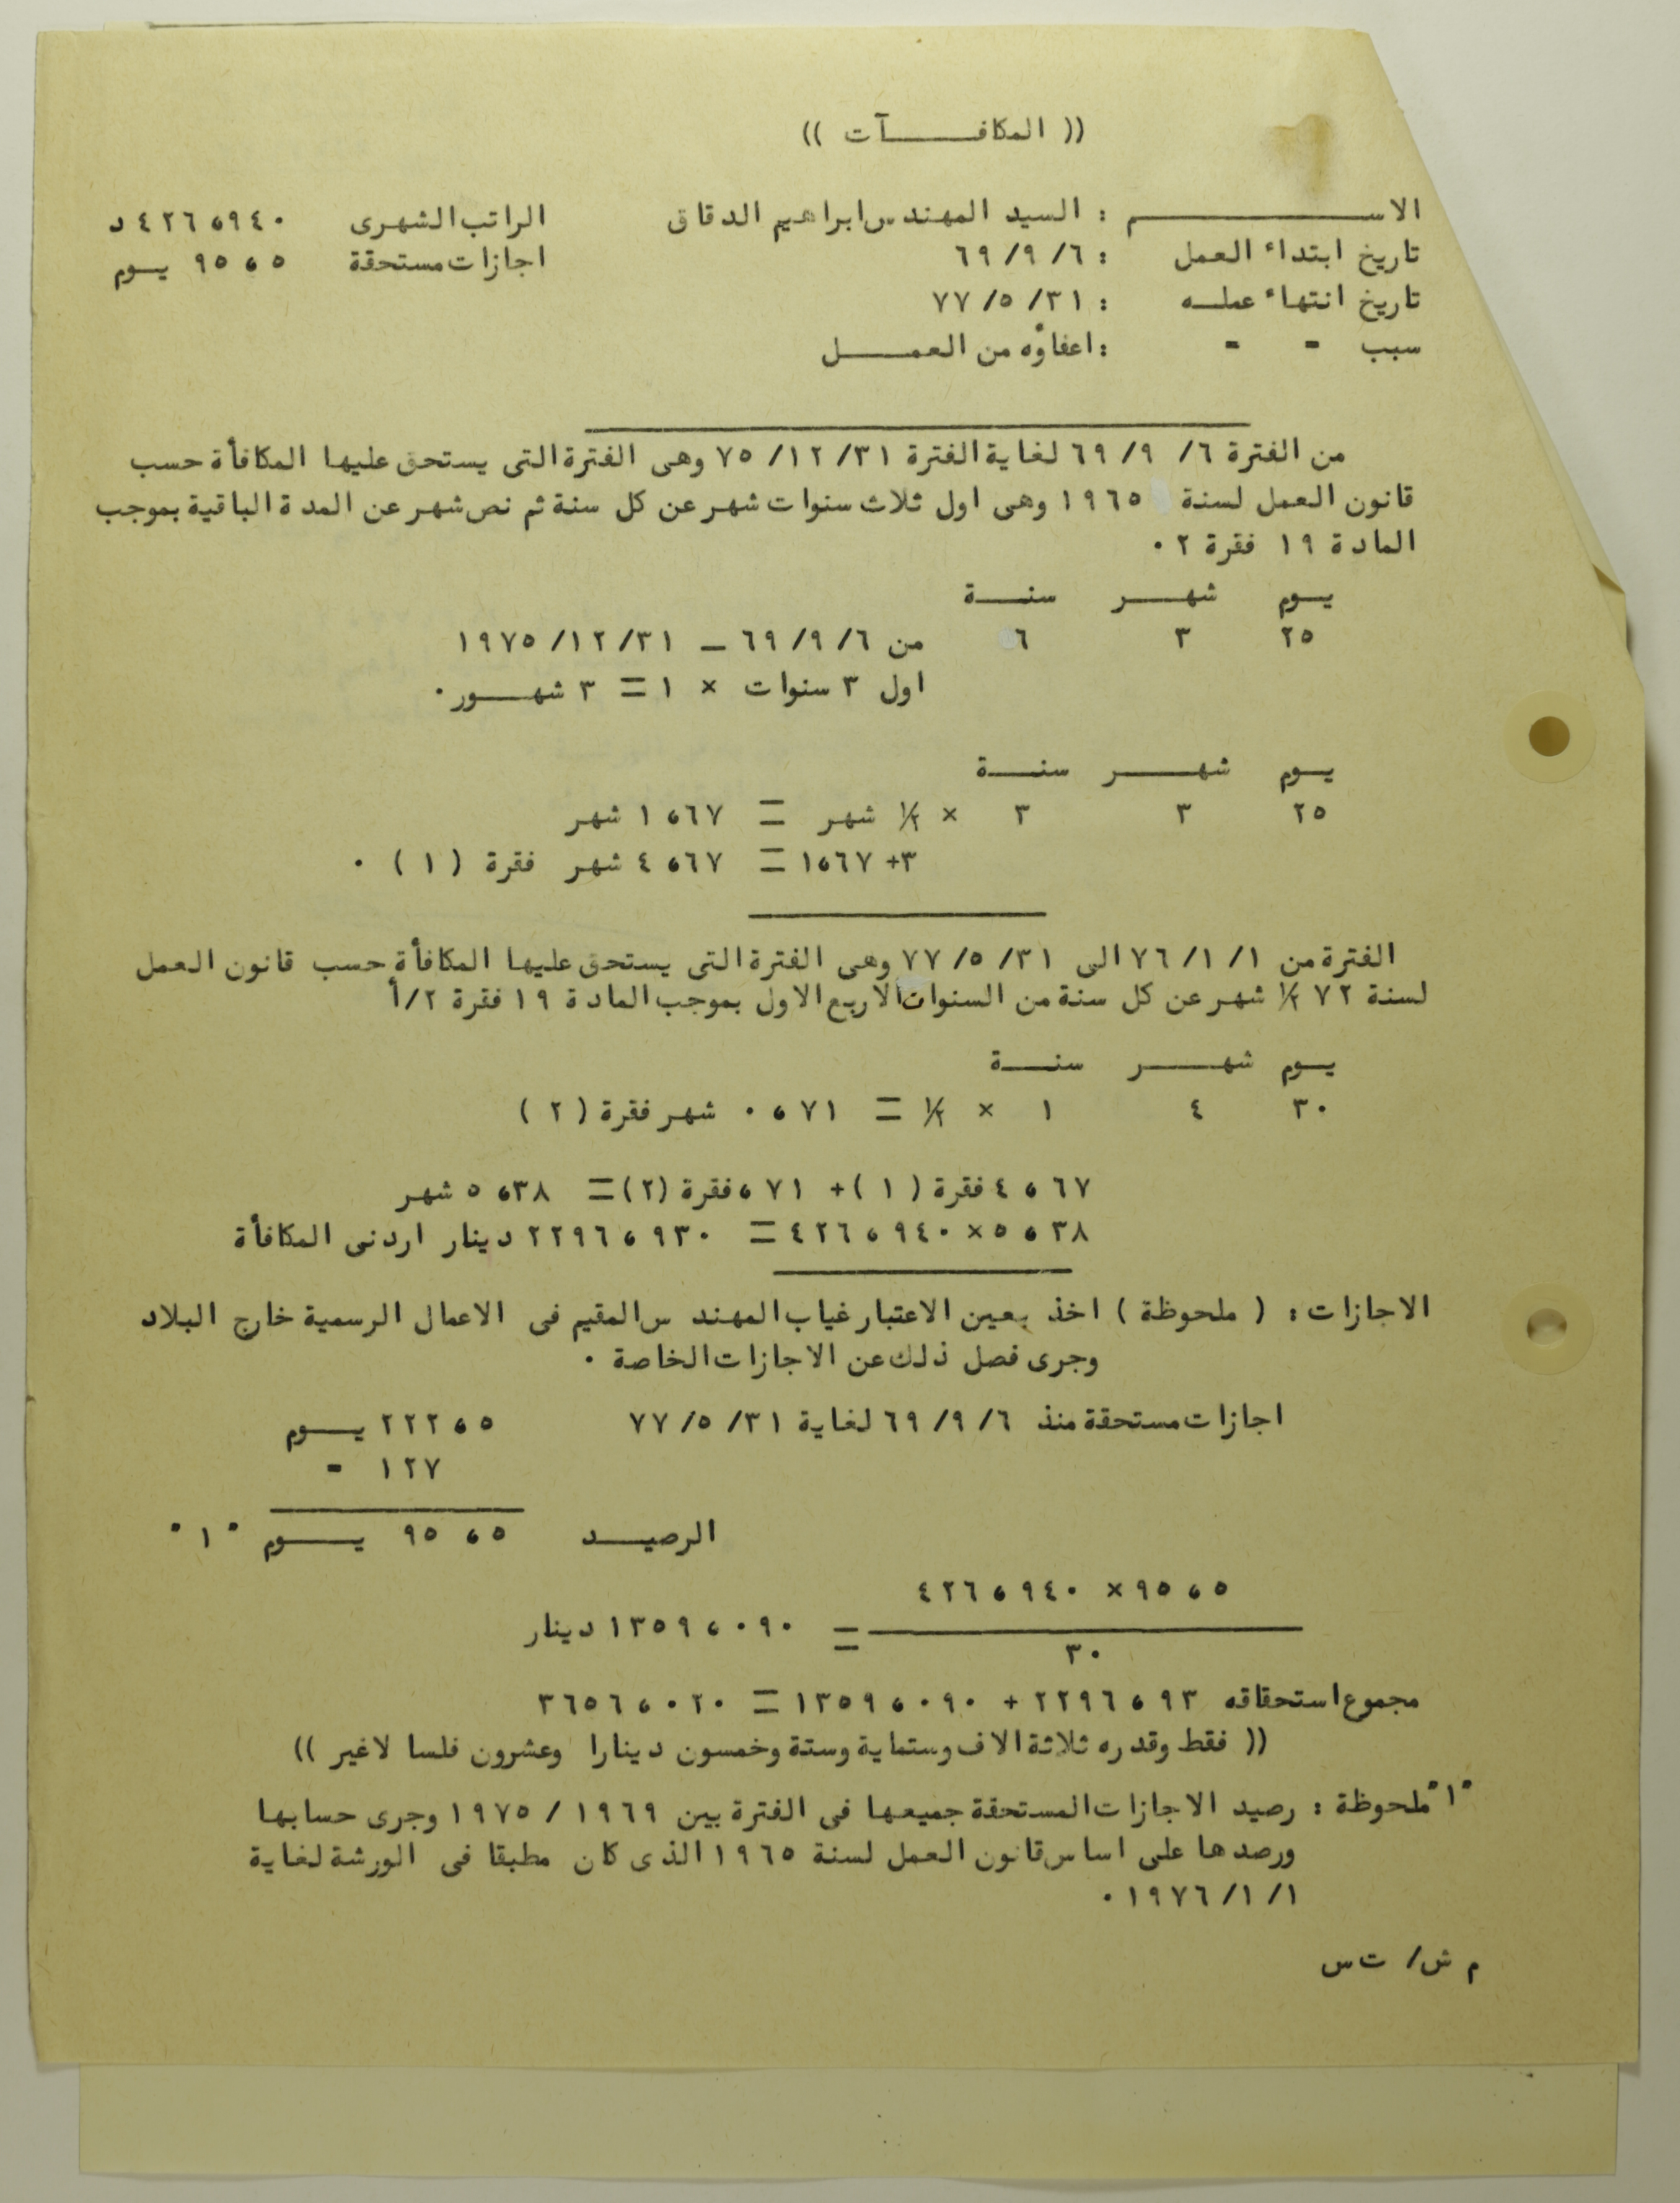 (( المكافــــآت ))
الاســـــــــم : السيد المهندس ابراهيم الدقاق الراتب الشهرى ٤٢٦،٩٤٠ د
تاريخ ابتداء العمل : ٦/ ٩/ ٦٩ اجازات مستحقة ٩٥،٥ يــوم
تاريخ انتهاء عملــه : ٣١/ ٥/ ٧٧
سبب = = : اعفاؤه من العمــــل
من الفترة ٦/ ٩/ ٦٩ لغاية الفترة ٣١/ ١٢/ ٧٥ وهى الفترة التى يستحق عليها المكافأة حسب
قانون العمل لسنة ١٩٦٥ وهى اول ثلاث سنوات شهر عن كل سنة ثم نص شهر عن المدة الباقية بموجب
المادة ١٩ فقرة ٢ ٠
يــوم شهــــر سنــــة
٢٥ ٣ ٦ من ٦/ ٩/ ٦٩ ــ ٣١/ ١٢/ ١٩٧٥
اول ٣ سنوات × ١ = ٣ شهــــور ٠
يــوم شهــــر سنــــة
٢٥ ٣ ٣ × ١/٢ شهر = ١،٦٧ شهر
٣+ ١،٦٧ = ٤،٦٧ شهر فقرة ( ١ ) ٠
الفترة من ١/ ١/ ٧٦ الى ٣١/ ٥/ ٧٧ وهى الفترة التى يستحق عليها المكافأة حسب قانون العمل
لسنة ٧٢ ١/٢ شهر عن كل سنة من السنوات الاربع الاول بموجب المادة ١٩ فقرة ٢/أ
يــوم شهــــر سنــــة
٣٠ ٤ ١ × ١/٢ = ٠،٧١ شهر فقرة ( ٢ )
٤،٦٧ فقرة ( ١ ) + ،٧١ فقرة (٢) = ٥،٣٨ شهر
٥،٣٨ × ٤٢٦،٩٤٠ = ٢٢٩٦،٩٣٠ دينار اردنى المكافأة
الاجازات : ( ملحوظة ) اخذ بعين الاعتبار غياب المهندس المقيم فى الاعمال الرسمية خارج البلاد
وجرى فصل ذلك عن الاجازات الخاصة ٠
اجازات مستحقة منذ ٦/ ٩/ ٦٩ لغاية ٣١/ ٥/ ٧٧ ٢٢٢،٥ يــوم
١٢٧ =
الرصيــد ٩٥،٥ يــــوم "١"
٩٥،٥ × ٤٢٦،٩٤٠
= ١٣٥٩،٠٩٠ دينار
٣٠
مجموع استحقاقه ٢٢٩٦،٩٣ + ١٣٥٩،٠٩٠ = ٣٦٥٦،٠٢٠
(( فقط وقدره ثلاثة الاف وستماية وستة وخمسون دينارا وعشرون فلسا لاغير ))
"١" ملحوظة : رصيد الاجازات المستحقة جميعها فى الفترة بين ١٩٦٩ / ١٩٧٥ وجرى حسابها
ورصدها على اساس قانون العمل لسنة ١٩٦٥ الذى كان مطبقا فى الورشة لغاية
١/ ١/ ١٩٧٦ ٠
م ش/ ت س